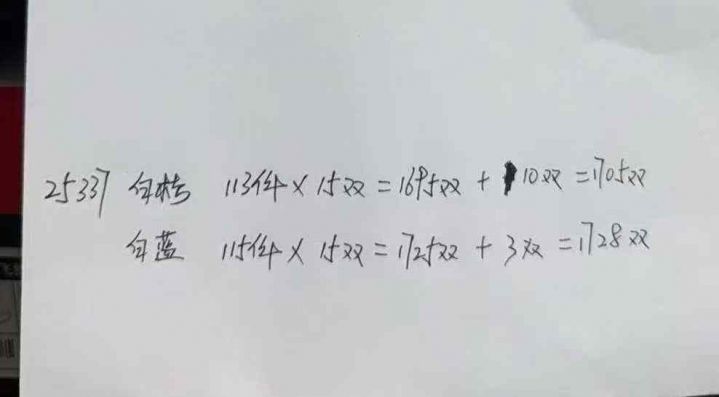 25337 白橙 113件×15双=1695双+10双=1705双
白蓝 115件×15双=1725双+3双=1728双